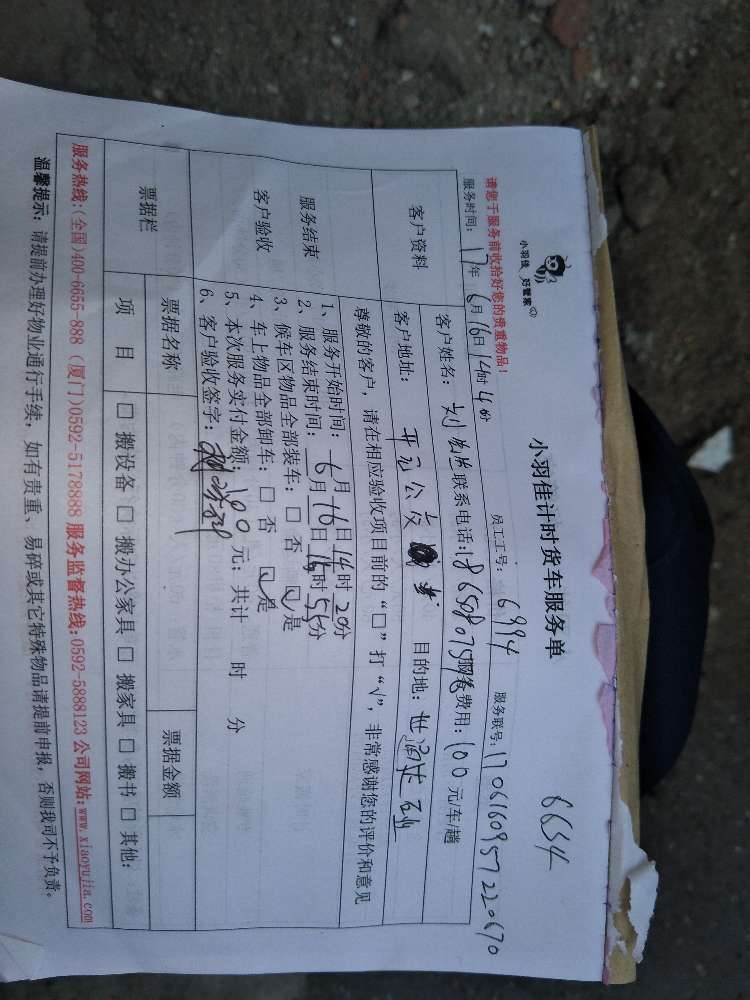 小羽佳 好管家
小羽佳计时货车服务单
6654
请您于服务前收拾好您的贵重物品!
服务时间: 17年 6月 16日 14时 4分 员工工号: 6994 服务联号: 170616095722067 0
客户资料
客户姓名: 联系电话: 服务费用: 100 元/车/趟
客户地址: 开元公交 目的地:
尊敬的客户, 请在相应验收项目前的 “□” 打 “√”, 非常感谢您的评价和意见
服务结束
客户验收
1、服务开始时间: 6月 16日 14时 20分
2、服务结束时间: 6月 16日 15时 55分
3、候车区物品全部装车: □ 否 ☑ 是
4、车上物品全部卸车: □ 否 ☑ 是
5、本次服务实付金额 元; 共计 时 分
6、客户验收签字:
票据栏 票据名称 票据金额
项 目 □ 搬设备 □ 搬办公家具 □ 搬家具 □ 搬书 □ 其他:
服务热线:(全国)400-6655-888 (厦门)0592-5178888 服务监督热线:0592-5888123 公司网站:www.xiaoyujia.com
温馨提示: 请提前办理好物业通行手续, 如有贵重、易碎或其它特殊物品请提前申报, 否则我司不予负责。